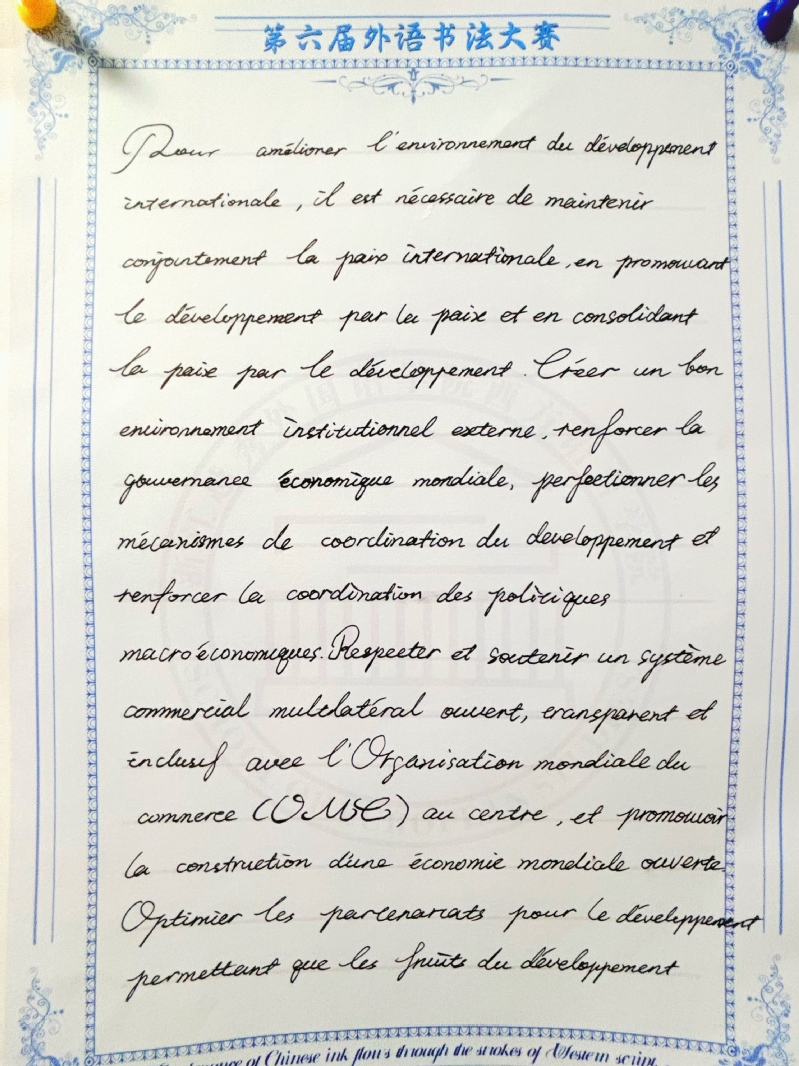 第六届外语书法大赛
Pour améliorer l'environnement du développement
internationale, il est nécessaire de maintenir
conjointement la paix internationale, en promouvant
le développement par la paix et en consolidant
la paix par le développement. Créer un bon
environnement institutionnel externe, renforcer la
gouvernance économique mondiale, perfectionner les
mécanismes de coordination du developpement et
renforcer la coordination des politiques
macroéconomiques. Respecter et soutenir un système
commercial multilatéral ouvert, transparent et
inclusif avec l'Organisation mondiale du
commerce (OMC) au centre, et promouvoir
la construction d'une économie mondiale ouverte.
Optimier les partenariats pour le développement
permettant que les fruits du développement
of Chinese ink flows through the strokes of Western script